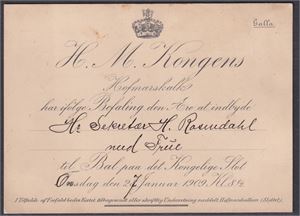 Galla.
H. M. Kongens
Hofmarskalk
har ifølge Befaling den Ære at indbyde
Hr Sekretær H. Rosendahl
med Frue
til Bal paa det Kongelige Slot
Onsdag den 27 Januar 1909 Kl. 8½
I Tilfælde af Forfald bedes Kortet tilbagesendt eller skriftlig Underretning meddelt Hofmarskallen (Slottet).